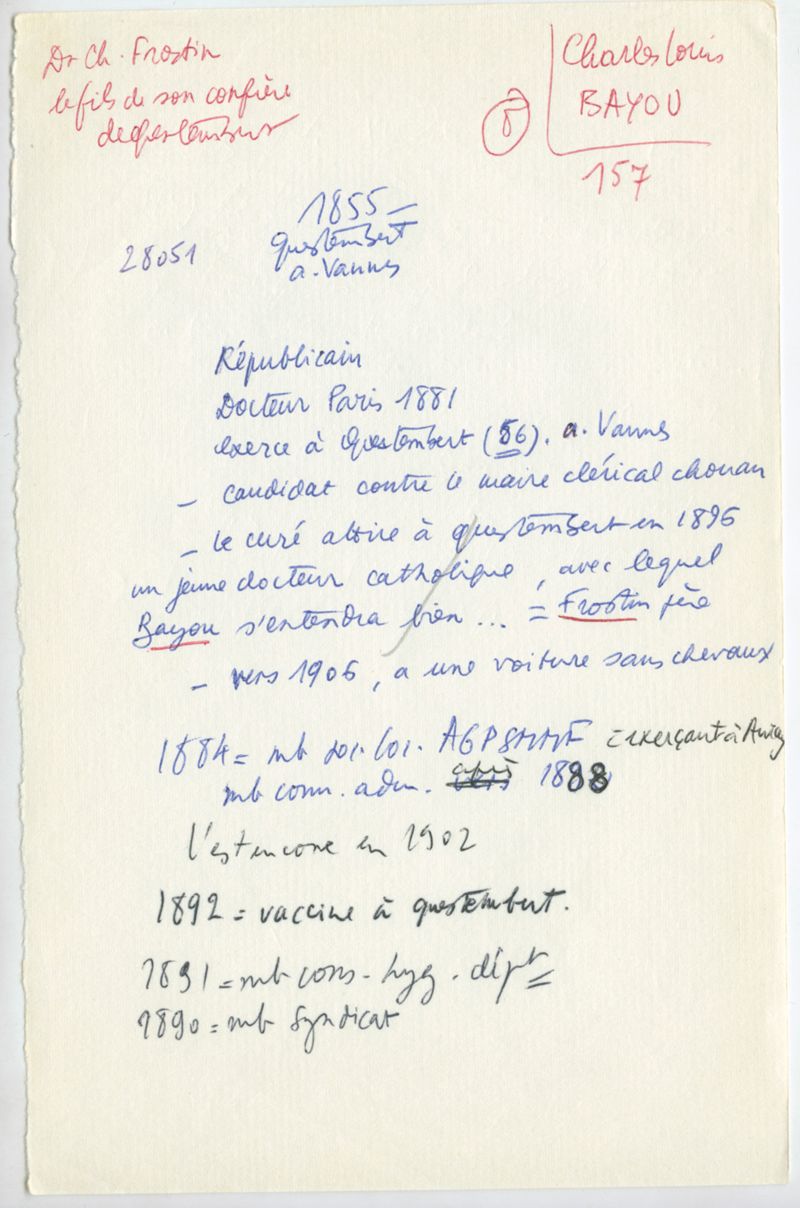 Dr Ch. Frostin
le fils de son confrère
de Questembert
Charles Louis
BAYOU
157
1855
Questembert
a. Vannes
28051
Républicain
Docteur Paris 1881
exerce à Questembert (56). a. Vannes
- candidat contre le maire clérical chouan
- le curé attire à Questembert en 1896
un jeune docteur catholique, avec lequel
Bayou s'entendra bien... = Frostin père
- vers 1906, a une voiture sans chevaux
1884 = mb soc. loc. = exerçant à
mb com. adm. après 1888
l'est encore en 1902
1892 = vaccine à Questembert.
1891 = mb cons. hyg. dépt
1890 = mb Syndicat